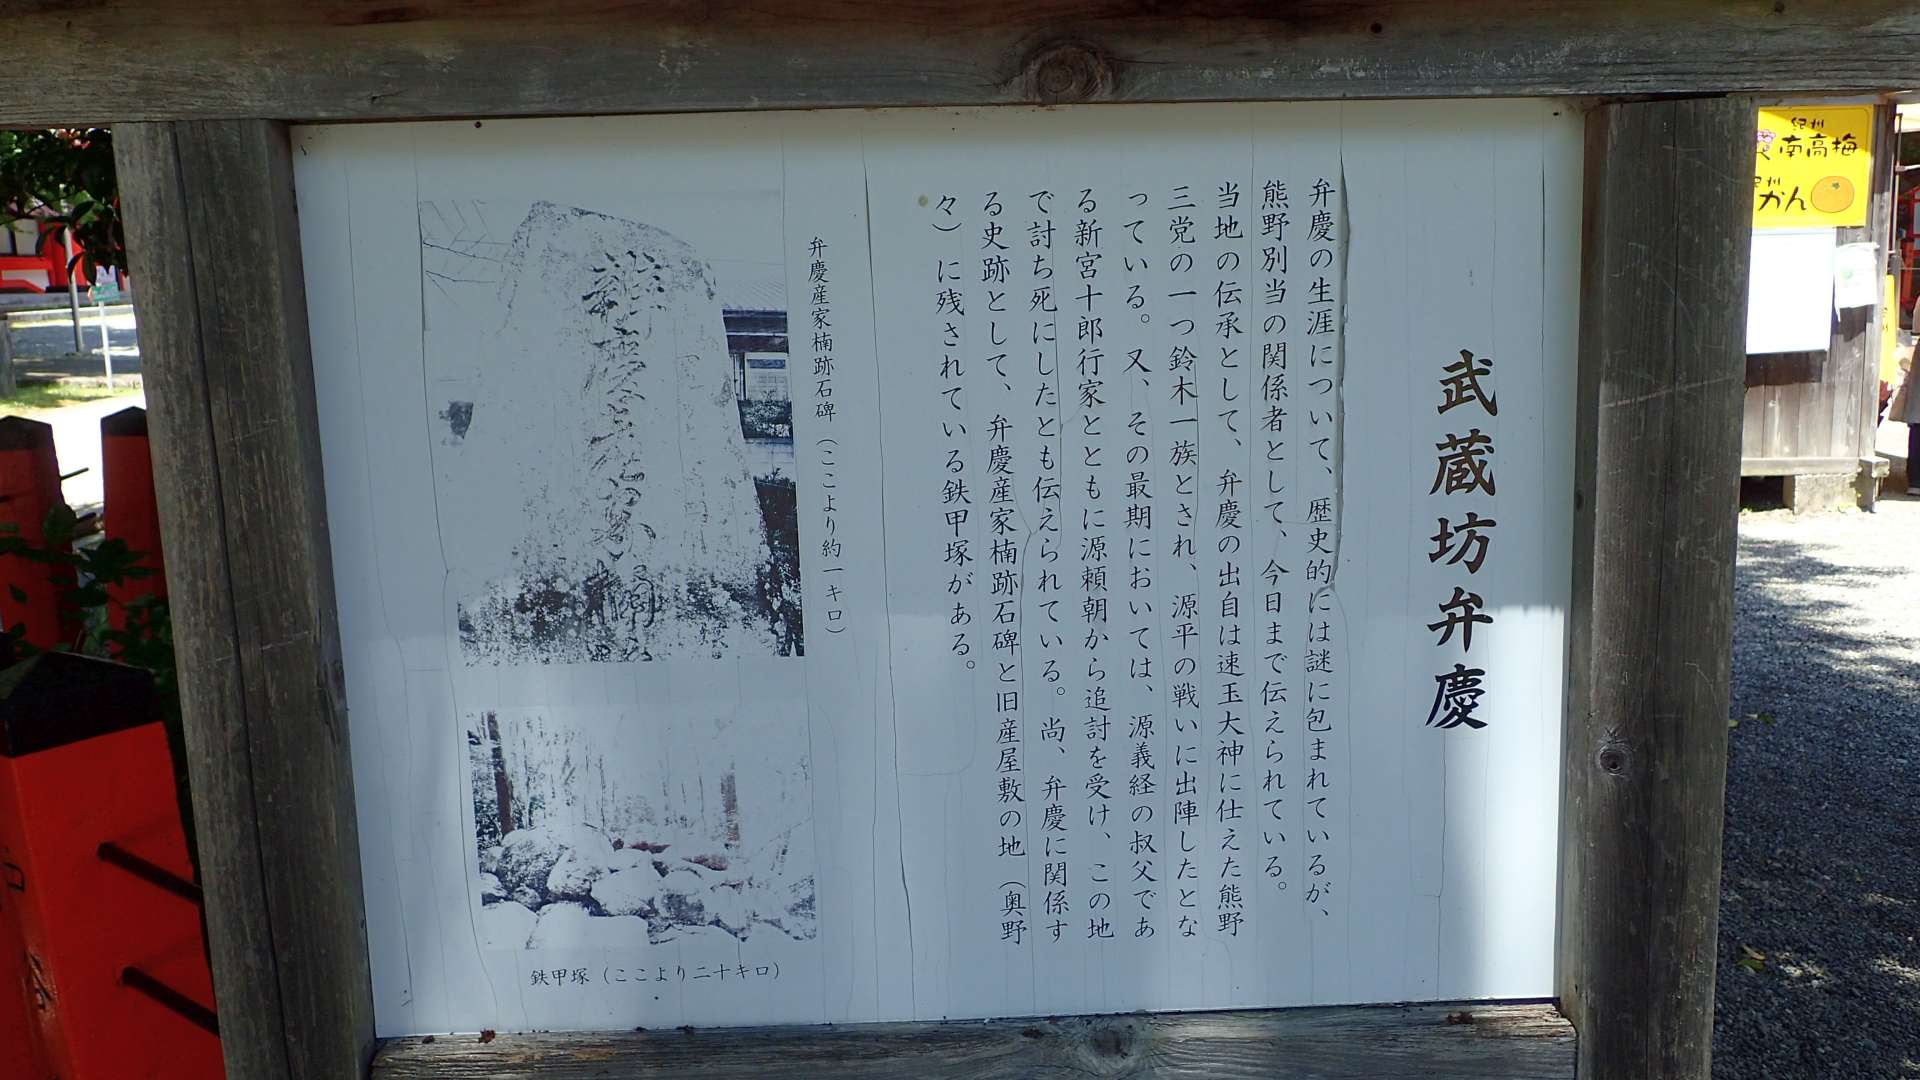 武蔵坊弁慶
弁慶の生涯について、歴史的には謎に包まれているが、
熊野別当の関係者として、今日まで伝えられている。
当地の伝承として、弁慶の出自は速玉大神に仕えた熊野
三党の一つ鈴木一族とされ、源平の戦いに出陣したとな
っている。又、その最期においては、源義経の叔父であ
る新宮十郎行家とともに源頼朝から追討を受け、この地
で討ち死にしたとも伝えられている。尚、弁慶に関係す
る史跡として、弁慶産家楠跡石碑と旧産屋敷の地（奥野
々）に残されている鉄甲塚がある。
弁慶産家楠跡石碑（ここより約一キロ）
鉄甲塚（ここより二十キロ）
紀州
南高梅
紀州
かん